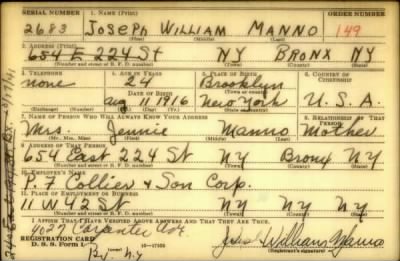 SERIAL NUMBER 1. NAME (Print) ORDER NUMBER
2683 JOSEPH WILLIAM MANNO 149
(First) (Middle) (Last)
2. ADDRESS (Print)
654 E 224 St NY BRONX NY
(Number and street or R. F. D. number) (Town) (County) (State)
3. TELEPHONE 4. AGE IN YEARS 5. PLACE OF BIRTH 6. COUNTRY OF CITIZENSHIP
none 24 Brooklyn
DATE OF BIRTH (Town or county)
Aug 11 1916 New York U. S. A.
(Exchange) (Number) (Mo.) (Day) (Yr.) (State or country)
7. NAME OF PERSON WHO WILL ALWAYS KNOW YOUR ADDRESS 8. RELATIONSHIP OF THAT PERSON
Mrs. Jennie Manno Mother
(Mr., Mrs., Miss) (First) (Middle) (Last)
9. ADDRESS OF THAT PERSON
654 East 224 St NY Bronx NY
(Number and street or R. F. D. number) (Town) (County) (State)
10. EMPLOYER'S NAME
P F Collier & Son Corp.
11. PLACE OF EMPLOYMENT OR BUSINESS
11 W 42 St NY NY NY
(Number and street or R. F. D. number) (Town) (County) (State)
I AFFIRM THAT I HAVE VERIFIED ABOVE ANSWERS AND THAT THEY ARE TRUE.
4027 Carpenter Ave
REGISTRATION CARD
D. S. S. Form 1 16—17105
Bx. N.Y. Joseph William Manno
(Registrant's signature)